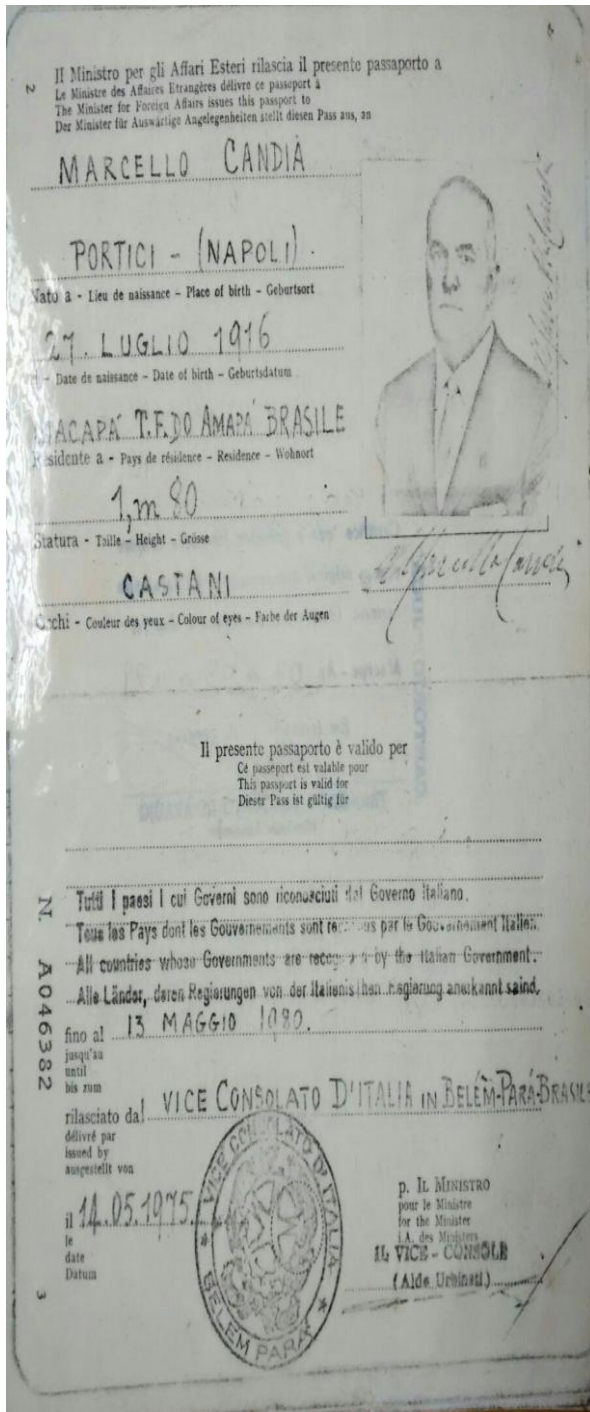 2
Il Ministro per gli Affari Esteri rilascia il presente passaporto a
Le Ministre des Affaires Etrangères délivre ce passeport à
The Minister for Foreign Affairs issues this passport to
Der Minister für Auswärtige Angelegenheiten stellt diesen Pass aus, an
MARCELLO CANDIA
PORTICI - (NAPOLI).
Nato a - Lieu de naissance - Place of birth - Geburtsort
27. LUGLIO 1916
- Date de naissance - Date of birth - Geburtsdatum
MACAPÁ T.F.DO AMAPÁ BRASILE
Residente a - Pays de résidence - Residence - Wohnort
1,m 80
Statura - Taille - Height - Grösse
CASTANI
Occhi - Couleur des yeux - Colour of eyes - Farbe der Augen
Marcello Candia
Il presente passaporto è valido per
Ce passeport est valable pour
This passport is valid for
Dieser Pass ist gültig für
Tutti i paesi i cui Governi sono riconosciuti dal Governo Italiano.
Tous les Pays dont les Gouvernements sont reconnus par le Gouvernement Italien.
All countries whose Governments are recognized by the Italian Government.
Alle Länder, deren Regierungen von der Italienischen Regierung anerkannt saind.
N. A046382
fino al 13 MAGGIO 1980.
jusqu'au
until
bis zum
rilasciato dal VICE CONSOLATO D'ITALIA IN BELÉM-PARÁ-BRASILE
délivré par
issued by
ausgestellt von
il 14.05.1975
le
date
Datum
VICE CONSOLATO D'ITALIA
BELEM PARÁ
p. IL MINISTRO
pour le Ministre
for the Minister
i.A. des Ministers
IL VICE-CONSOLE
(Aldo Urbinati)
3